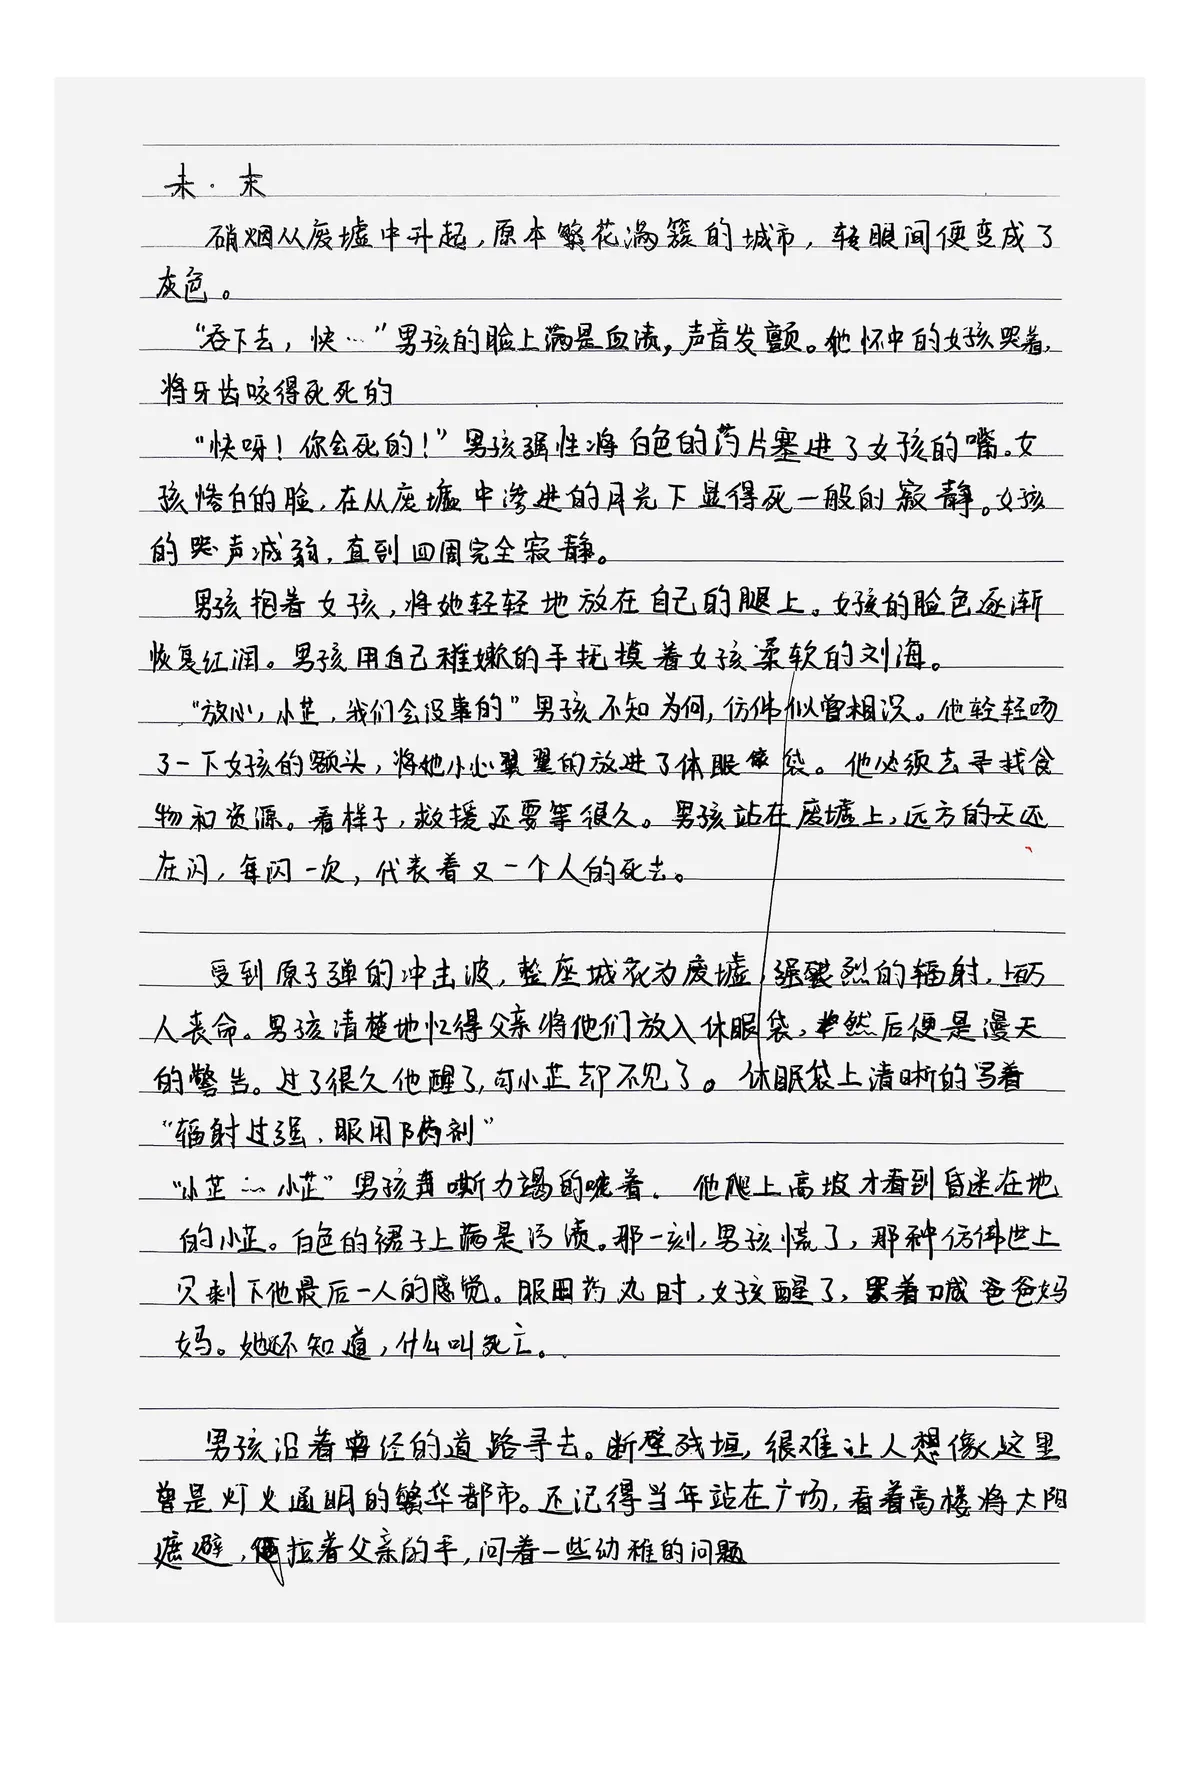 未·末
硝烟从废墟中升起，原本繁花满簇的城市，转眼间便变成了
灰色。
“吞下去，快…”男孩的脸上满是血渍，声音发颤。他怀中的女孩哭着，
将牙齿咬得死死的
“快呀！你会死的！”男孩强性将白色的药片塞进了女孩的嘴。女
孩惨白的脸，在从废墟中渗进的月光下显得死一般的寂静。女孩
的哭声减弱，直到四周完全寂静。
男孩抱着女孩，将她轻轻地放在自己的腿上。女孩的脸色逐渐
恢复红润。男孩用自己稚嫩的手抚摸着女孩柔软的刘海。
“放心，小芷，我们会没事的”男孩不知为何，仿佛似曾相识。他轻轻吻
了一下女孩的额头，将她小心翼翼的放进了休眠袋。他必须去寻找食
物和资源。看样子，救援还要等很久。男孩站在废墟上，远方的天还
在闪，每闪一次，代表着又一个人的死去。
受到原子弹的冲击波，整座城化为废墟，强烈的辐射，上百万
人丧命。男孩清楚地忆得父亲将他们放入休眠袋，然后便是漫天
的警告。过了很久他醒了，可小芷却不见了。休眠袋上清晰的写着
“辐射过强，服用下药剂”
“小芷…小芷”男孩声嘶力竭的吼着。他爬上高坡才看到昏迷在地
的小芷。白色的裙子上满是污渍。那一刻，男孩慌了，那种仿佛世上
只剩下他最后一人的感觉。服用药丸时，女孩醒了，哭着喊爸爸妈
妈。她还不知道，什么叫死亡。
男孩沿着曾经的道路寻去。断壁残垣，很难让人想像这里
曾是灯火通明的繁华都市。还记得当年站在广场，看着高楼将太阳
遮避，他拉着父亲的手，问着一些幼稚的问题